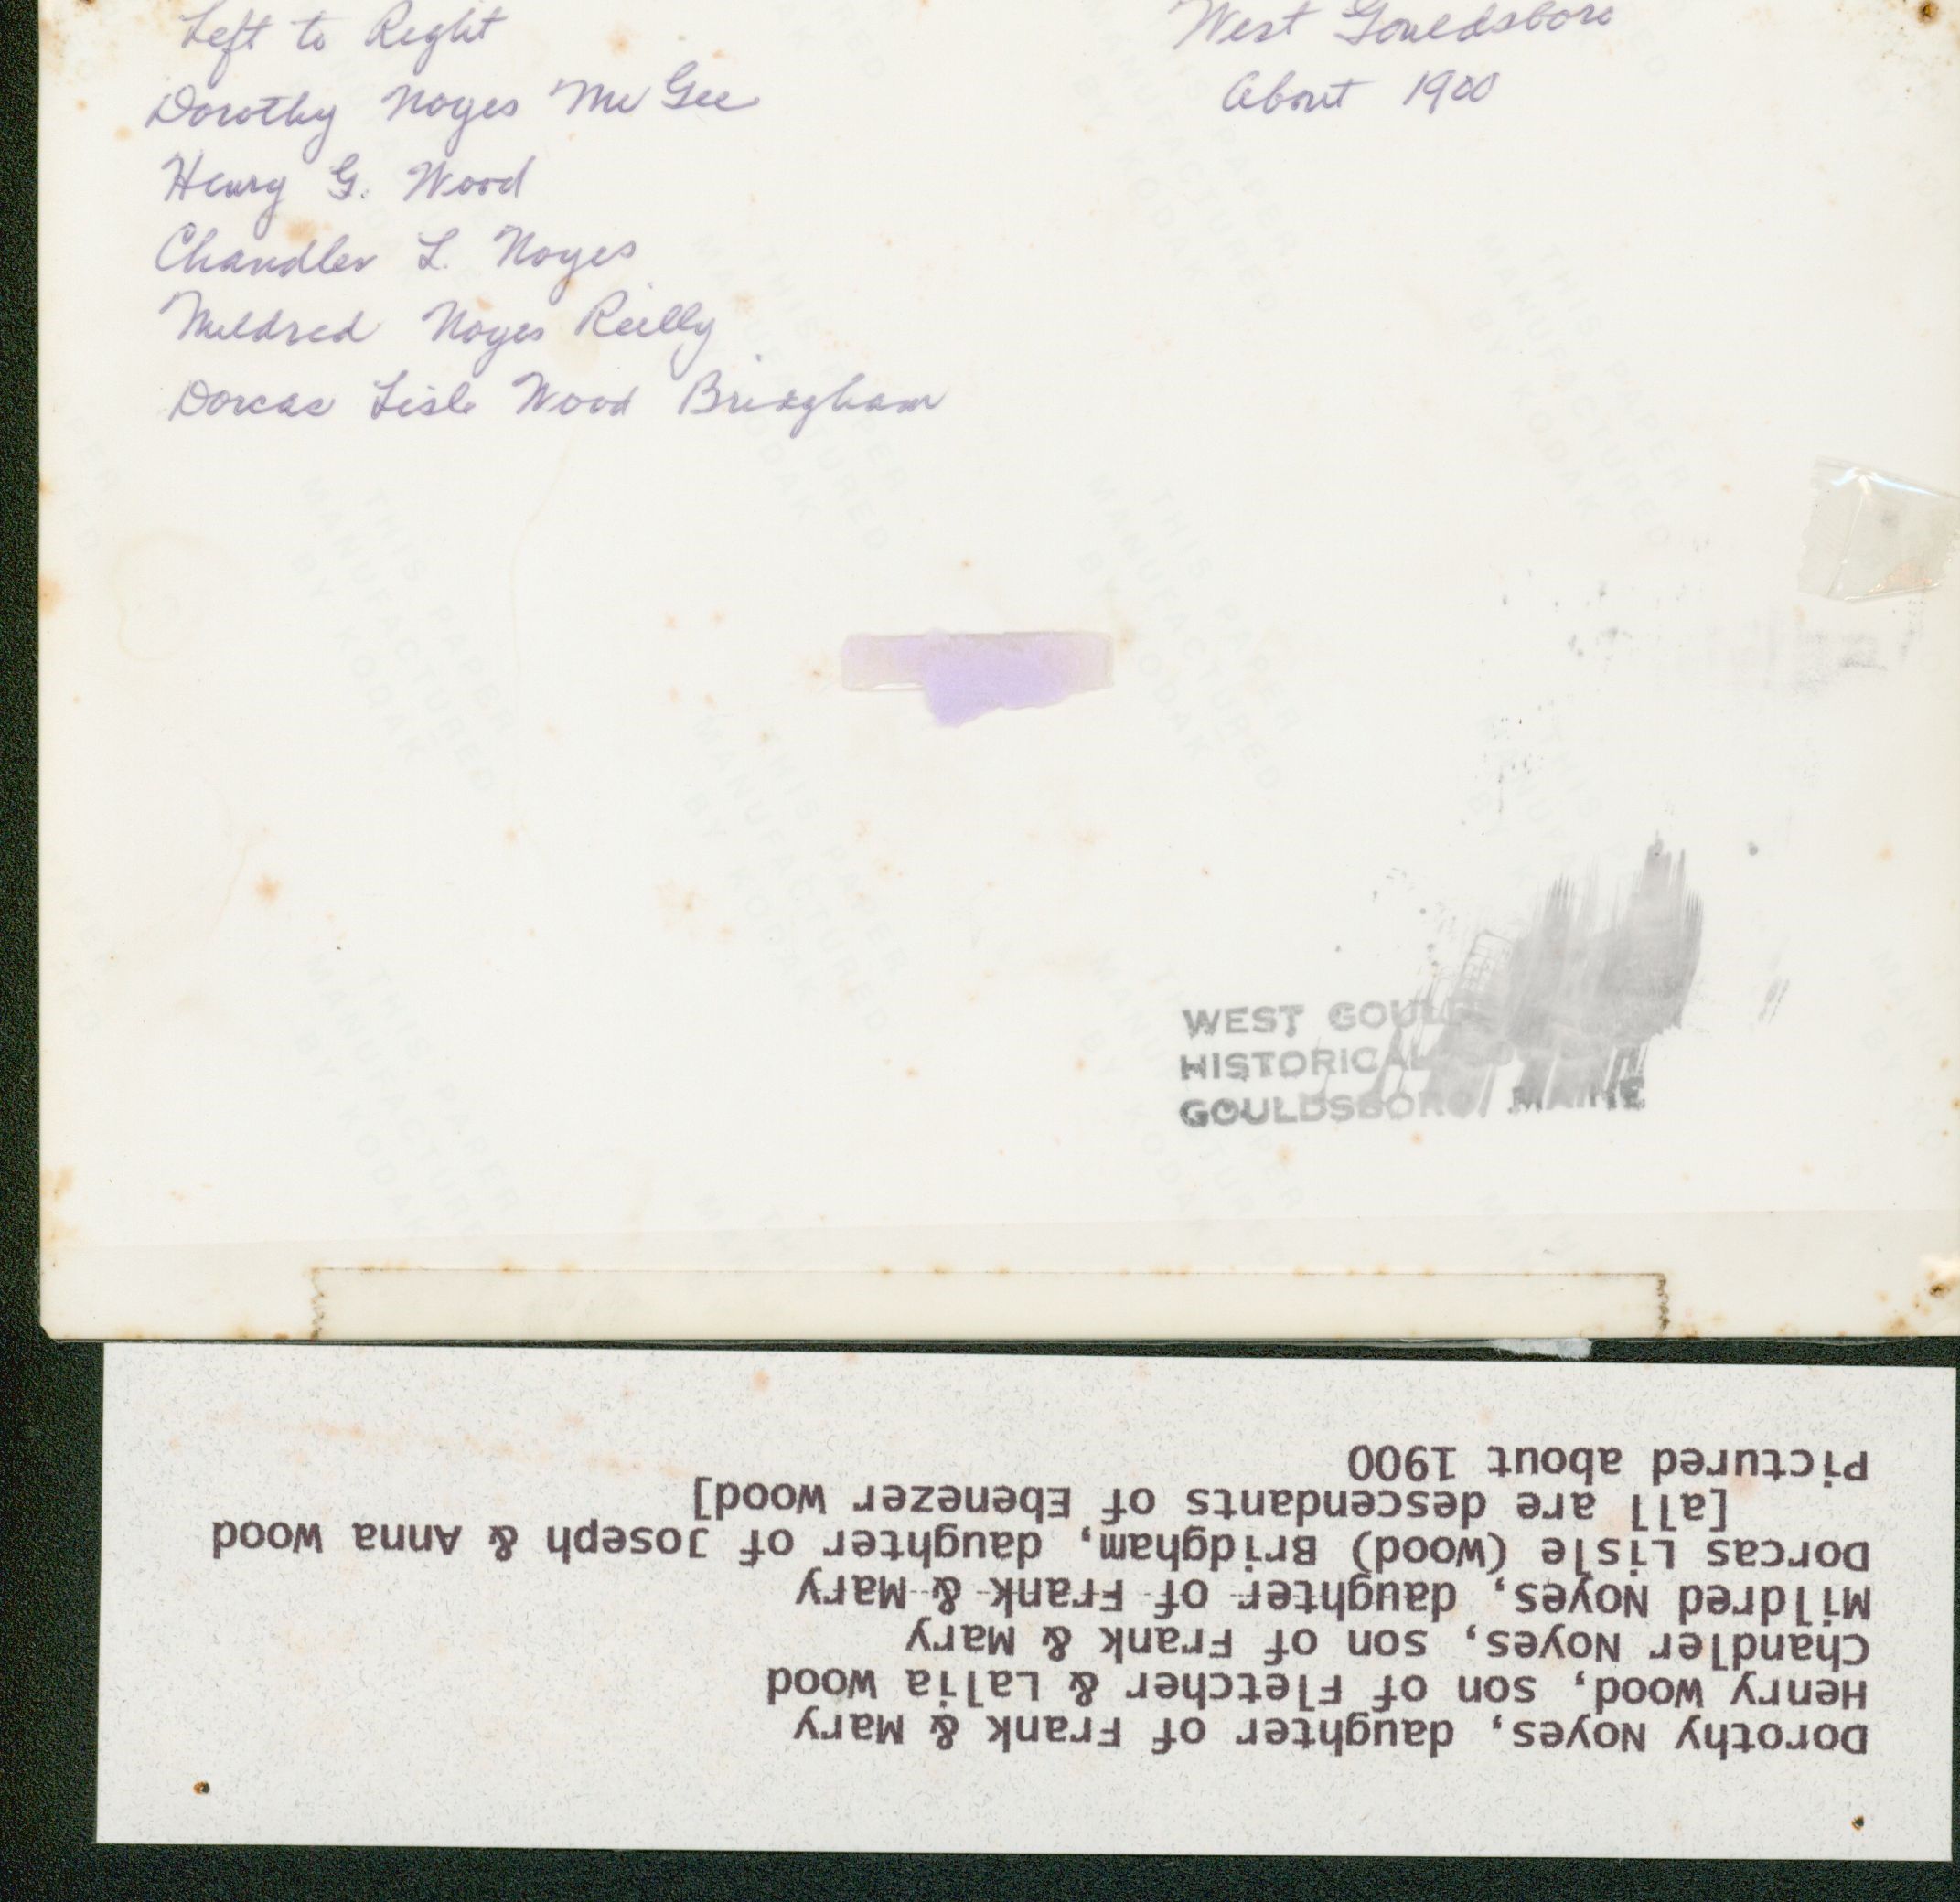 Left to Right
Dorothy Noyes McGee
Henry G. Wood
Chandler L. Noyes
Mildred Noyes Reilly
Dorcas Lisle Wood Bridgham
West Gouldsboro
About 1900
THIS PAPER
MANUFACTURED
BY KODAK
WEST GOUL
HISTORICAL
GOULDSBORO, MAINE
Dorothy Noyes, daughter of Frank & Mary
Henry Wood, son of Fletcher & Lalia Wood
Chandler Noyes, son of Frank & Mary
Mildred Noyes, daughter of Frank & Mary
Dorcas Lisle (Wood) Bridgham, daughter of Joseph & Anna Wood
[all are descendants of Ebenezer Wood]
Pictured about 1900